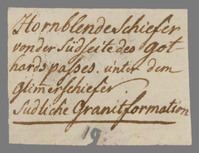 Hornblendeschiefer
von der Südseite des Got=
hardspasses. unter dem
glimerschiefer
Südliche Granitformation
19.